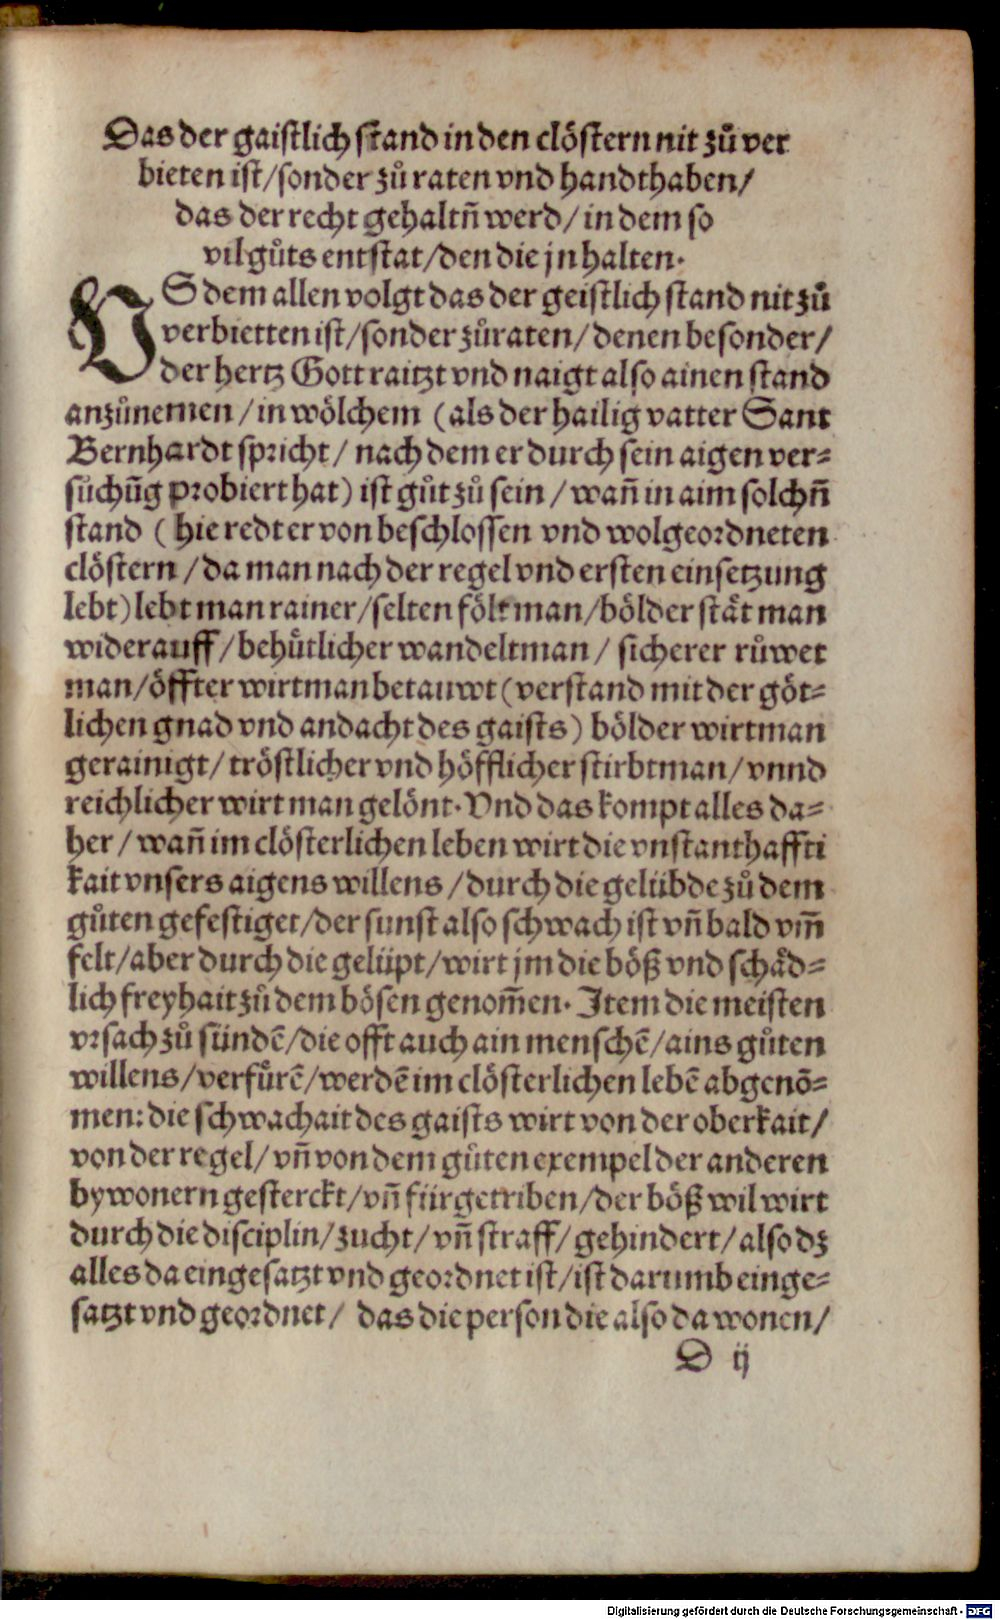 Das der gaistlich stand in den clöstern nit zů ver
bieten ist/sonder zů raten vnd handthaben/
das der recht gehaltñ werd/in dem so
vil gůts entstat/den die jn halten.
VS dem allen volgt das der geistlich stand nit zů
verbietten ist/sonder zůraten/denen besonder/
der hertz Gott raitzt vnd naigt also ainen stand
anzůnemen/in wölchem (als der hailig vatter Sant
Bernhardt spricht/ nach dem er durch sein aigen ver-
sůchũg probiert hat) ist gůt zů sein/wañ in aim solchñ
stand (hie redt er von beschlossen vnd wolgeordneten
clöstern/da man nach der regel vnd ersten einsetzung
lebt) lebt man rainer/selten fölt man/bölder stăt man
wider auff/behůtlicher wandelt man/ sicherer růwet
man/öffter wirt man betauwt (verstand mit der göt-
lichen gnad vnd andacht des gaists) bölder wirt man
gerainigt/tröstlicher vnd höfflicher stirbt man/vnnd
reichlicher wirt man gelönt. Vnd das kompt alles da-
her/wañ im clösterlichen leben wirt die vnstanthaffti
kait vnsers aigens willens/durch die gelübde zů dem
gůten gefestiget/der sunst also schwach ist vñ bald vm̃
felt/aber durch die gelüpt/wirt jm die böß vnd schäd-
lich freyhait zů dem bösen genom̃en. Item die meisten
vrsach zů sündẽ/die offt auch ain menschẽ/ains gůten
willens/verfůrẽ/werdẽ im clösterlichen lebẽ abgenõ-
men: die schwachait des gaists wirt von der oberkait/
von der regel/vñ von dem gůten exempel der anderen
bywonern gesterckt/vñ fürgetriben/der böß wil wirt
durch die disciplin/zucht/vñ straff/gehindert/also dz
alles da eingesatzt vnd geordnet ist/ist darumb einge-
satzt vnd geordnet/ das die person die also da wonen/
D ij
Digitalisierung gefördert durch die Deutsche Forschungsgemeinschaft - DFG